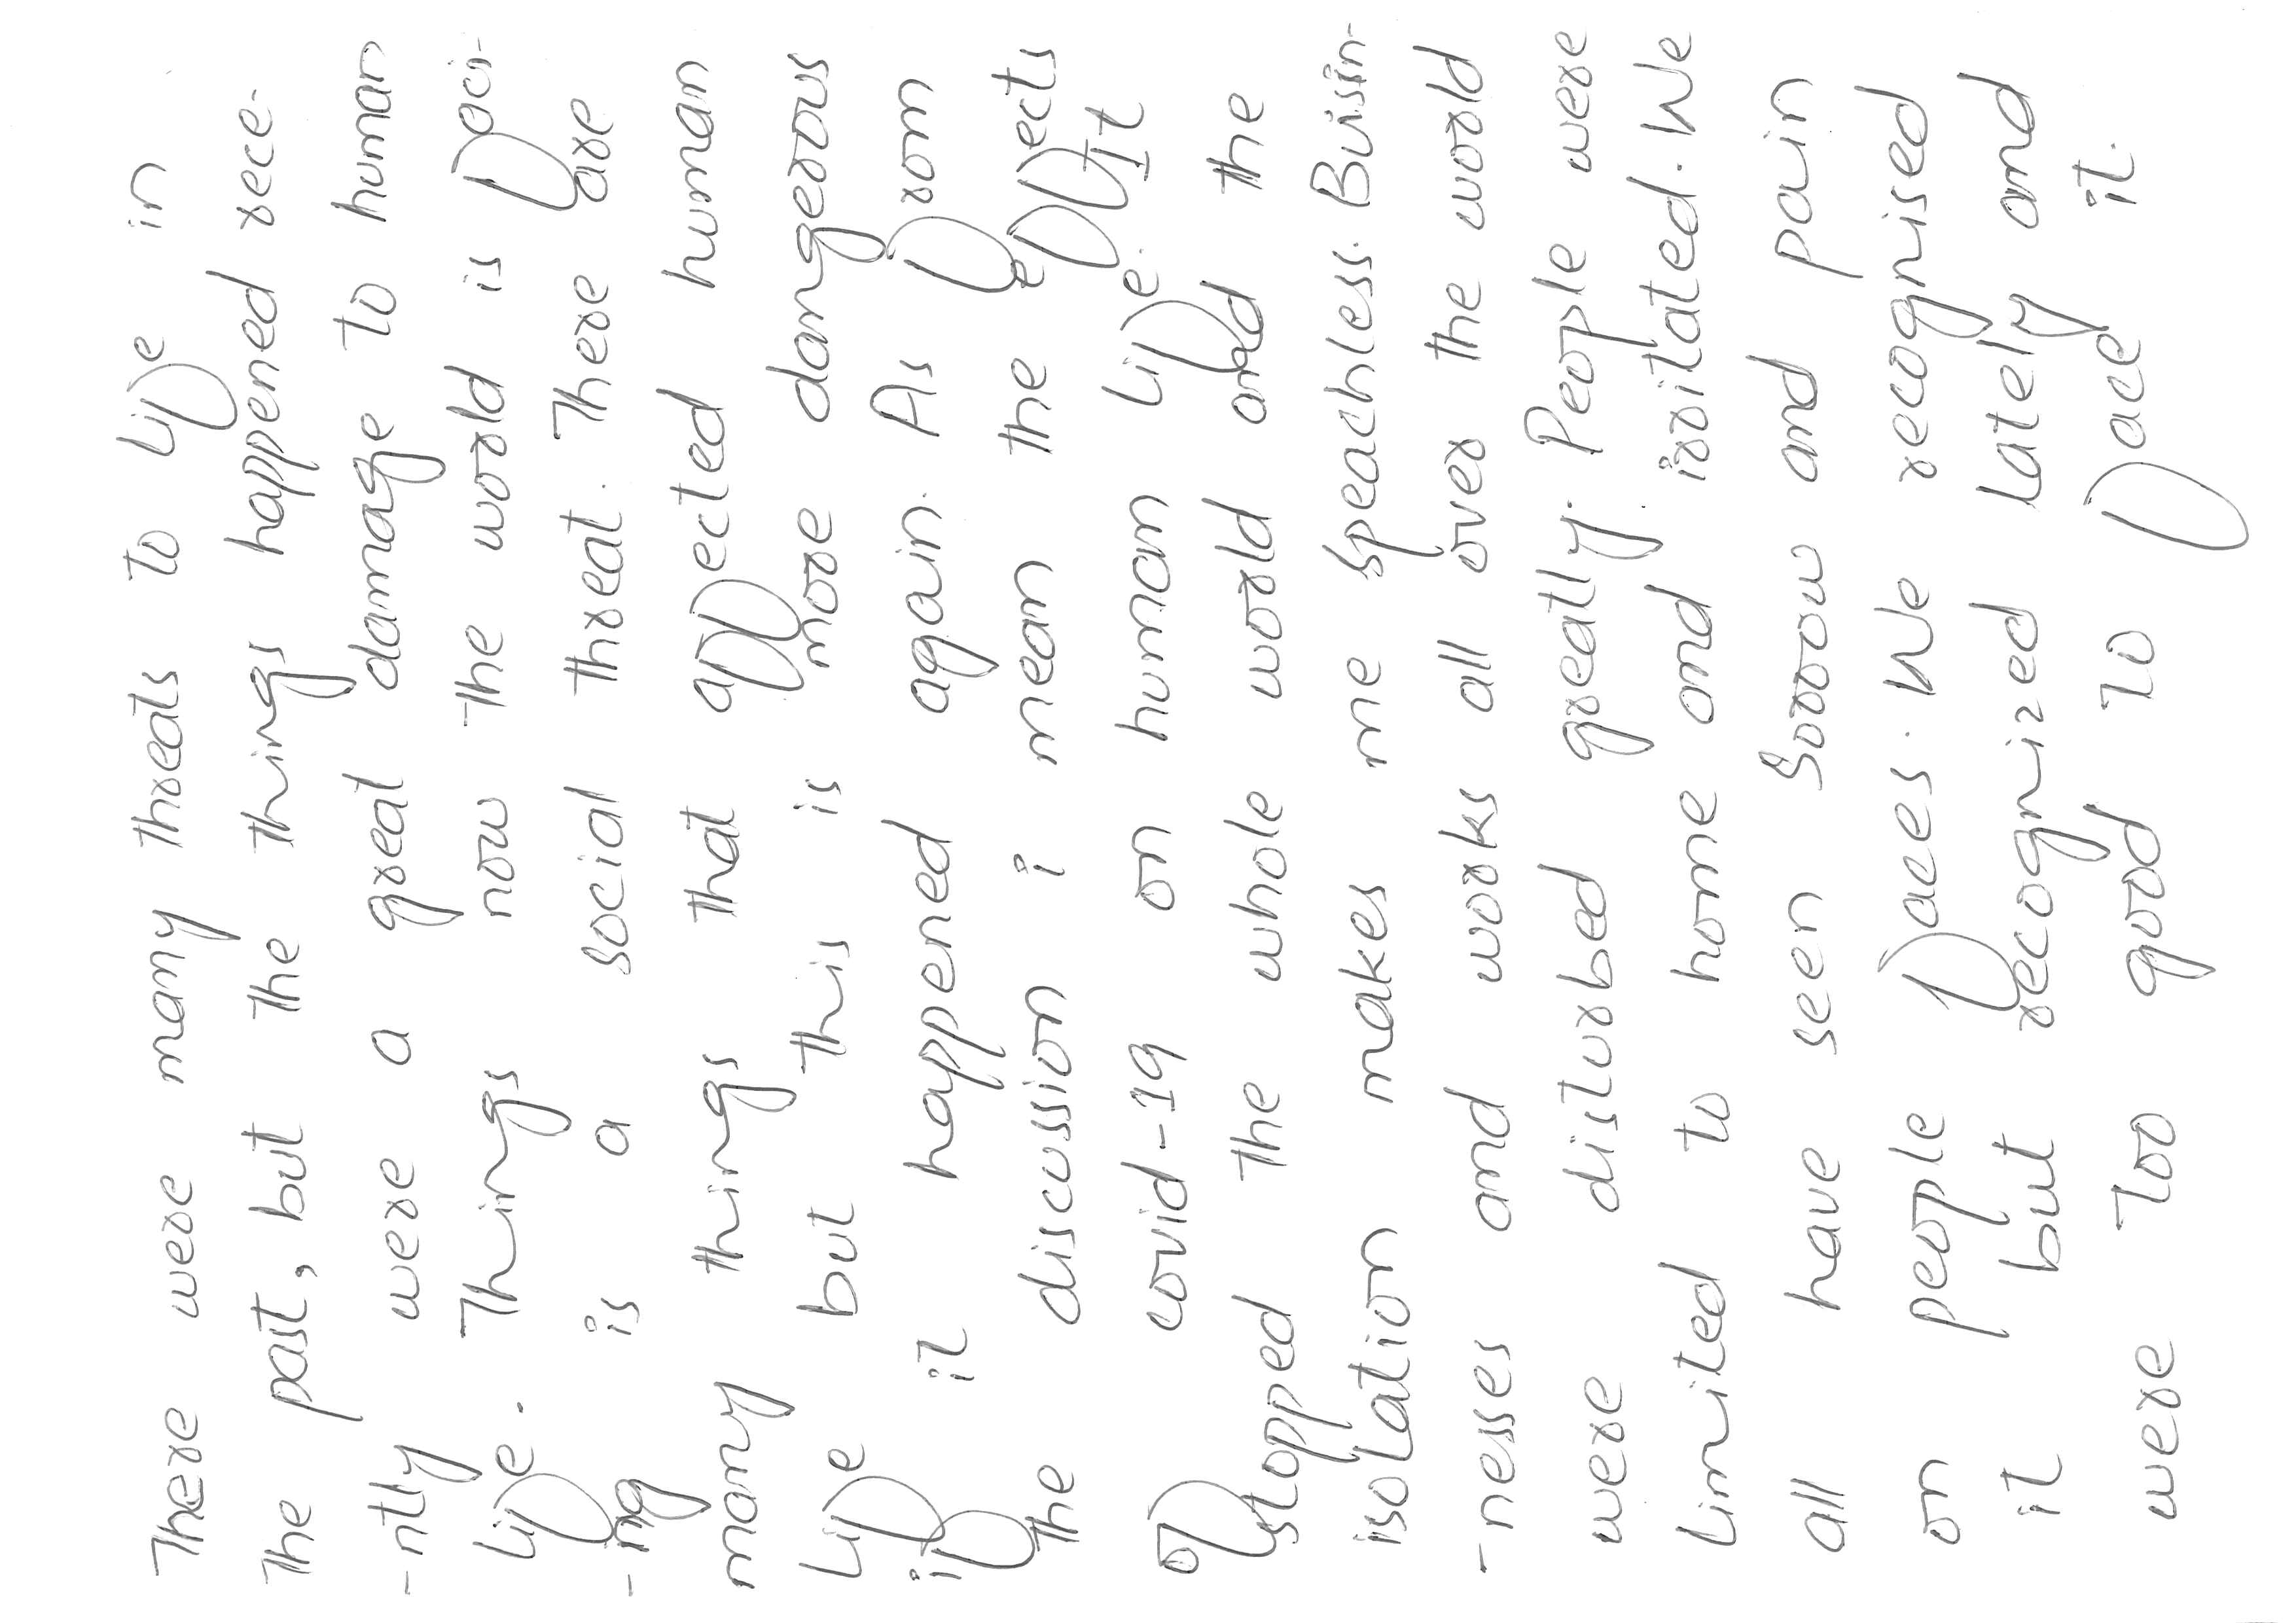 There were many threats to life in
the past, but the things happened rece-
-ntly were a great damage to human
life. Things now the world is faci-
-ng is a social threat. There are
many things that affected human
life but this is more dangerous
if it happened again. As from
the discussion i mean the effects
of covid-19 on human life. It
stopped the whole world and the
isolation makes me speachless. Buisin-
-nesses and works all over the world
were disturbed greatly. People were
limited to home and irritated. We
all have seen Sorrow and pain
on people faces. We recognised
it but recognized lately and
were too good to face it.